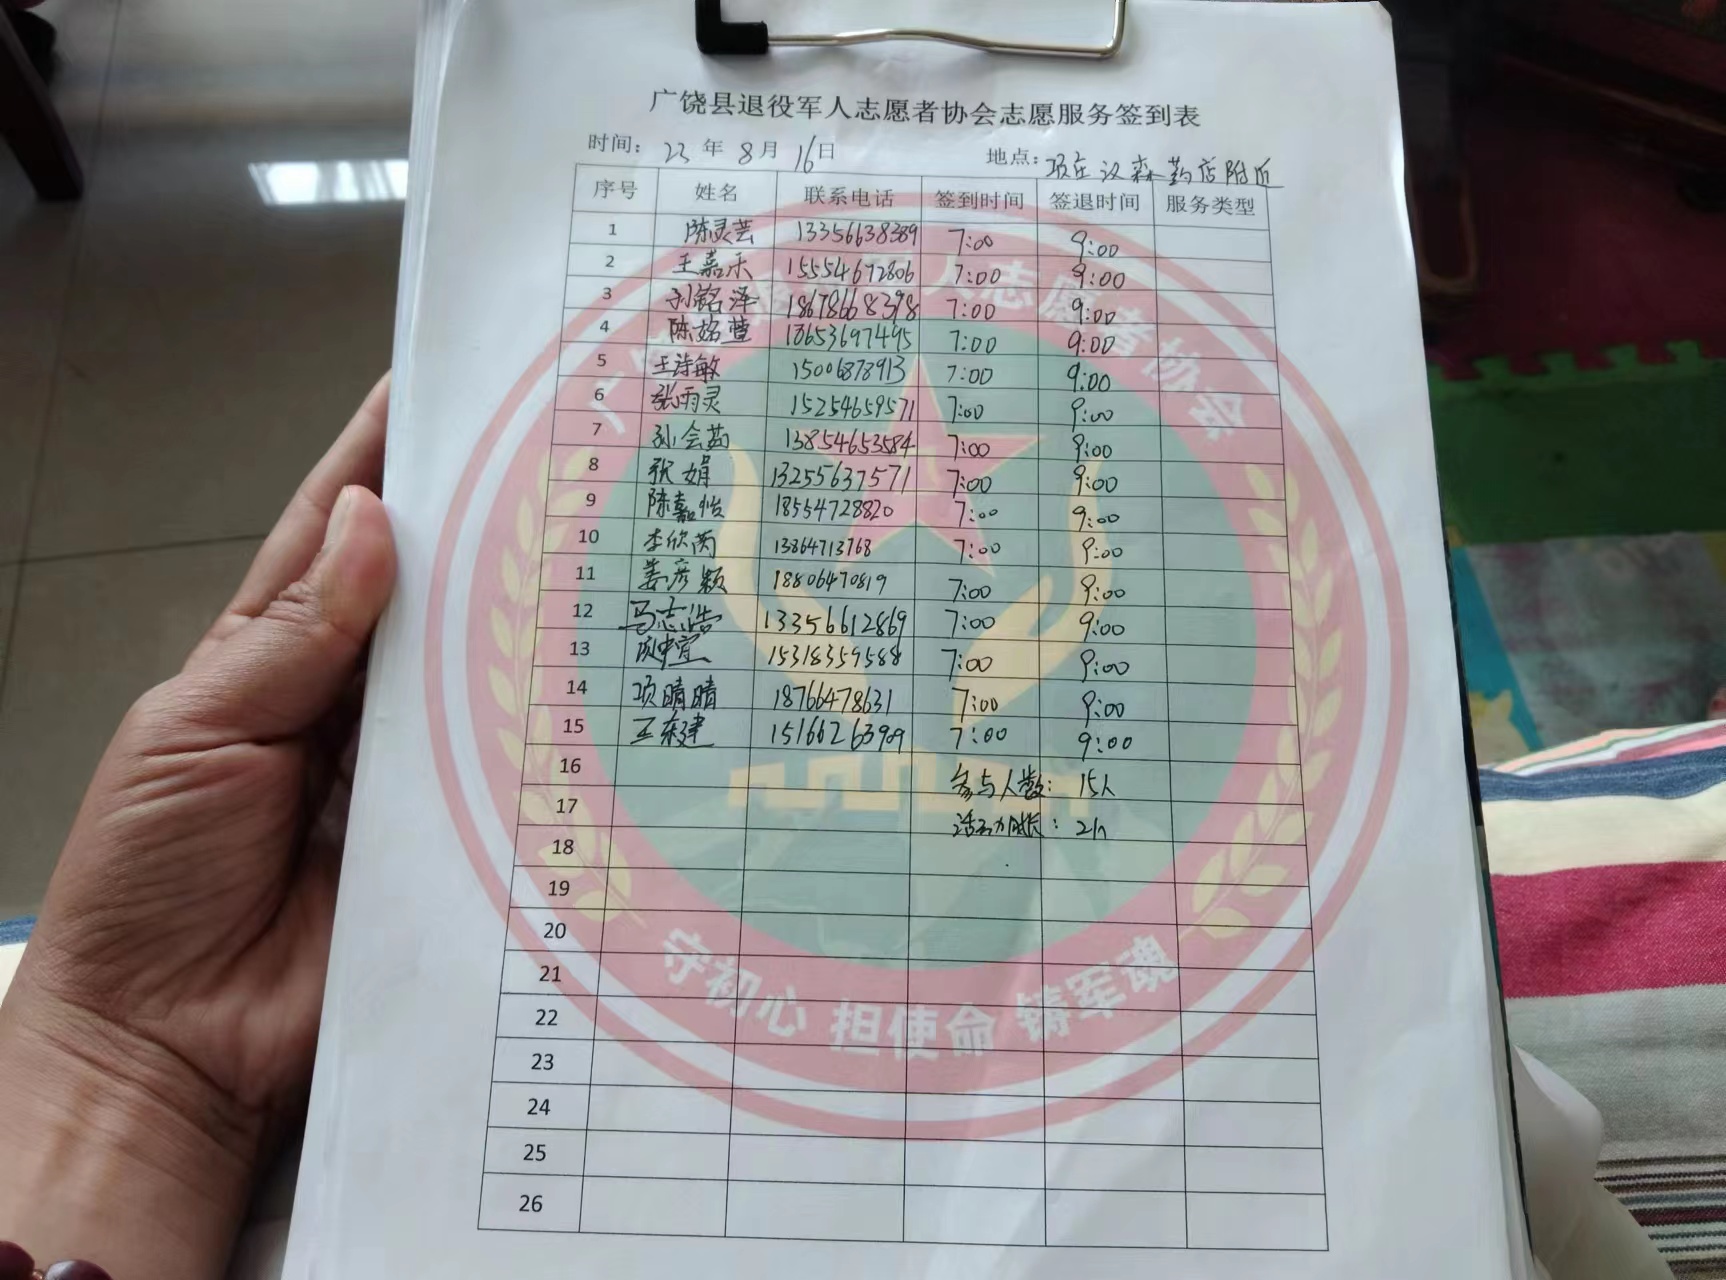 广饶县退役军人志愿者协会志愿服务签到表
时间: 23 年 8 月 16日 地点: 项庄汉森药店附近
序号 姓名 联系电话 签到时间 签退时间 服务类型
1 陈灵芸 13356638389 7:00 9:00
2 王嘉乐 15554672806 7:00 9:00
3 刘铭泽 18678668398 7:00 9:00
4 陈姞萱 18653697495 7:00 9:00
5 王诗敏 15006878913 7:00 9:00
6 张雨灵 15254659571 7:00 9:00
7 孙会茹 13854653584 7:00 9:00
8 张娟 13255637571 7:00 9:00
9 陈嘉怡 18554728820 7:00 9:00
10 李欣芮 13864713768 7:00 9:00
11 姜彦颖 18806470819 7:00 9:00
12 马志浩 13356612869 7:00 9:00
13 15318359588 7:00 9:00
14 项晴晴 18766478631 7:00 9:00
15 王东建 15166263909 7:00 9:00
16 参与人数: 15人
17 活动时长: 2h
18
19
20
21
22
23
24
25
26
人志愿者协会
守初心 担使命 铸军魂